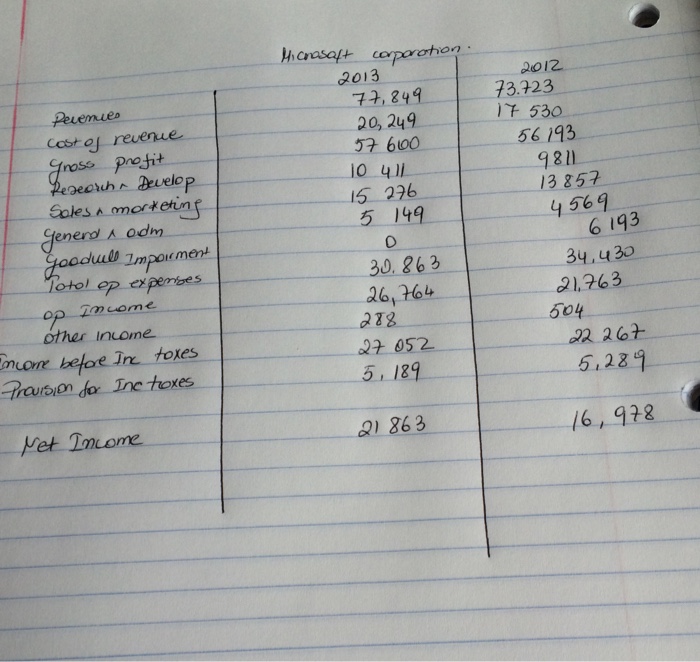 Microsoft corporation.
2013 2012
Revenues 77,849 73.723
cost of revenue 20,249 17 530
gross profit 57 600 56 193
Research ʌ Develop 10 411 9811
Sales ʌ marketing 15 276 13 857
general ʌ adm 5 149 4 569
goodwill Impairment 0 6 193
Total op expenses 30.863 34,430
op Income 26,764 21,763
other income 288 504
Income before Inc taxes 27 052 22 267
Provision for Inc taxes 5,189 5,289
Net Income 21 863 16,978